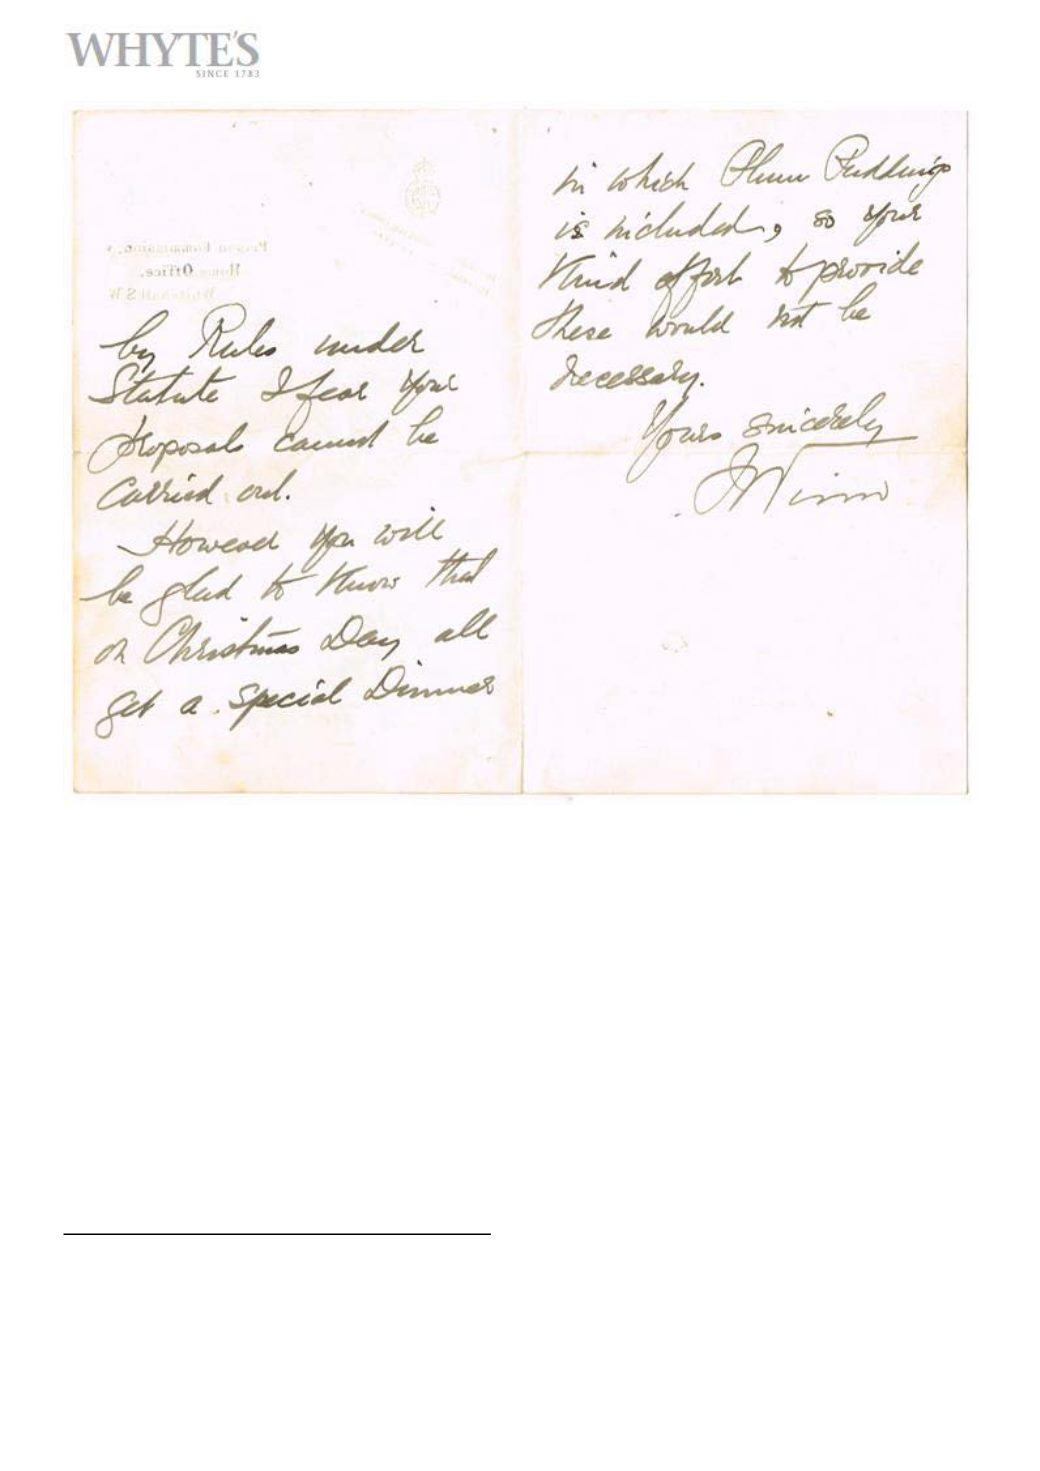 WHYTE'S
SINCE 1783
Prison Commission,
Home Office,
Whitehall S W
by Rules under
Statute I fear your
proposals cannot be
carried out.
However you will
be glad to know that
on Christmas Day all
get a special Dinner
in which Plum Puddings
is included, so your
kind effort to provide
these would not be
necessary.
Yours sincerely